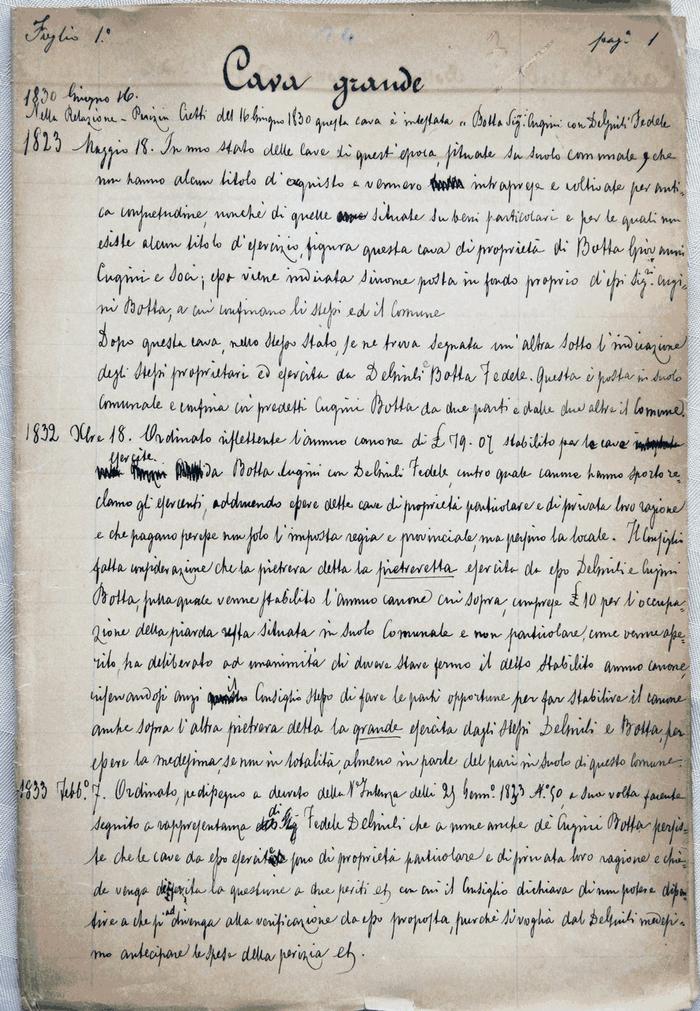 Foglio 1.°
pag.ª 1
Cava grande
1830 Giugno 16.
Nella Relazione - Perizia Cietti del 16 Giugno 1830 questa cava è intestata " Botta Sig.ri Cugini con Delgrili Fedele
1823 Maggio 18. In uno stato delle Cave di quest'epoca, situate su suolo comunale, che
non hanno alcun titolo d'acquisto e vennero intraprese e coltivate per anti-
ca consuetudine, nonchè di quelle situate su beni particolari e per le quali non
esiste alcun titolo d'esercizio, figura questa cava di proprietà di Botta Giovanni
Cugini e Soci; essa viene indicata siccome posta in fondo proprio d'essi Sig.ri Cugi-
ni Botta, a cui confinano li stessi ed il Comune
Dopo questa cava, nello stesso stato, se ne trova segnata un'altra sotto l'indicazione
degli stessi proprietari ed esercita da Delgrili e Botta Fedele. Questa è posta in suolo
comunale e confina coi predetti Cugini Botta da due parti e dalle due altre il Comune.
1832 Xbre 18. Ordinato riflettente l'annuo canone di £ 79. 07 stabilito per le cave
esercite da Botta Cugini con Delgrili Fedele, contro quale canone hanno sporto re-
clamo gli esercenti, adducendo essere dette cave di proprietà particolare e di privata loro ragione
e che pagano peresse non solo l'imposta regia e provinciale, ma persino la locale. Il Consiglio
fatta considerazione che la pietrera detta la pietreretta esercita da esso Delgrili e Cugini
Botta, sulla quale venne stabilito l'annuo canone cui sopra, comprese £ 10 per l'occupa-
zione della situata in suolo Comunale e non particolare, come venne asse-
rito, ha deliberato ad unanimità di dovere stare fermo il detto stabilito annuo canone,
riservandosi anzi il Consiglio stesso di fare le parti opportune per far stabilire il canone
anche sopra l'altra pietrera detta la grande esercita dagli stessi Delgrili e Botta, per
essere la medesima, se non in totalità, almeno in parte del pari in suolo di questo comune
1833 Febb.° 7. Ordinato, pedissegno a decreto della R.ª Intenza delli 29 Genn.° 1833 N.° 50, a sua volta facente
seguito a rappresentanza di Fedele Delgrili che a nome anche de' Cugini Botta persis-
te che le cave da esso esercite sono di proprietà particolare e di privata loro ragione e chie-
de venga deferita la questione a due periti et con cui il Consiglio dichiara di non potere dissen-
tire a che si addivenga alla verificazione da esso proposta, purchè si voglia dal Delgrili medesi-
mo antecipare le spese della perizia et.